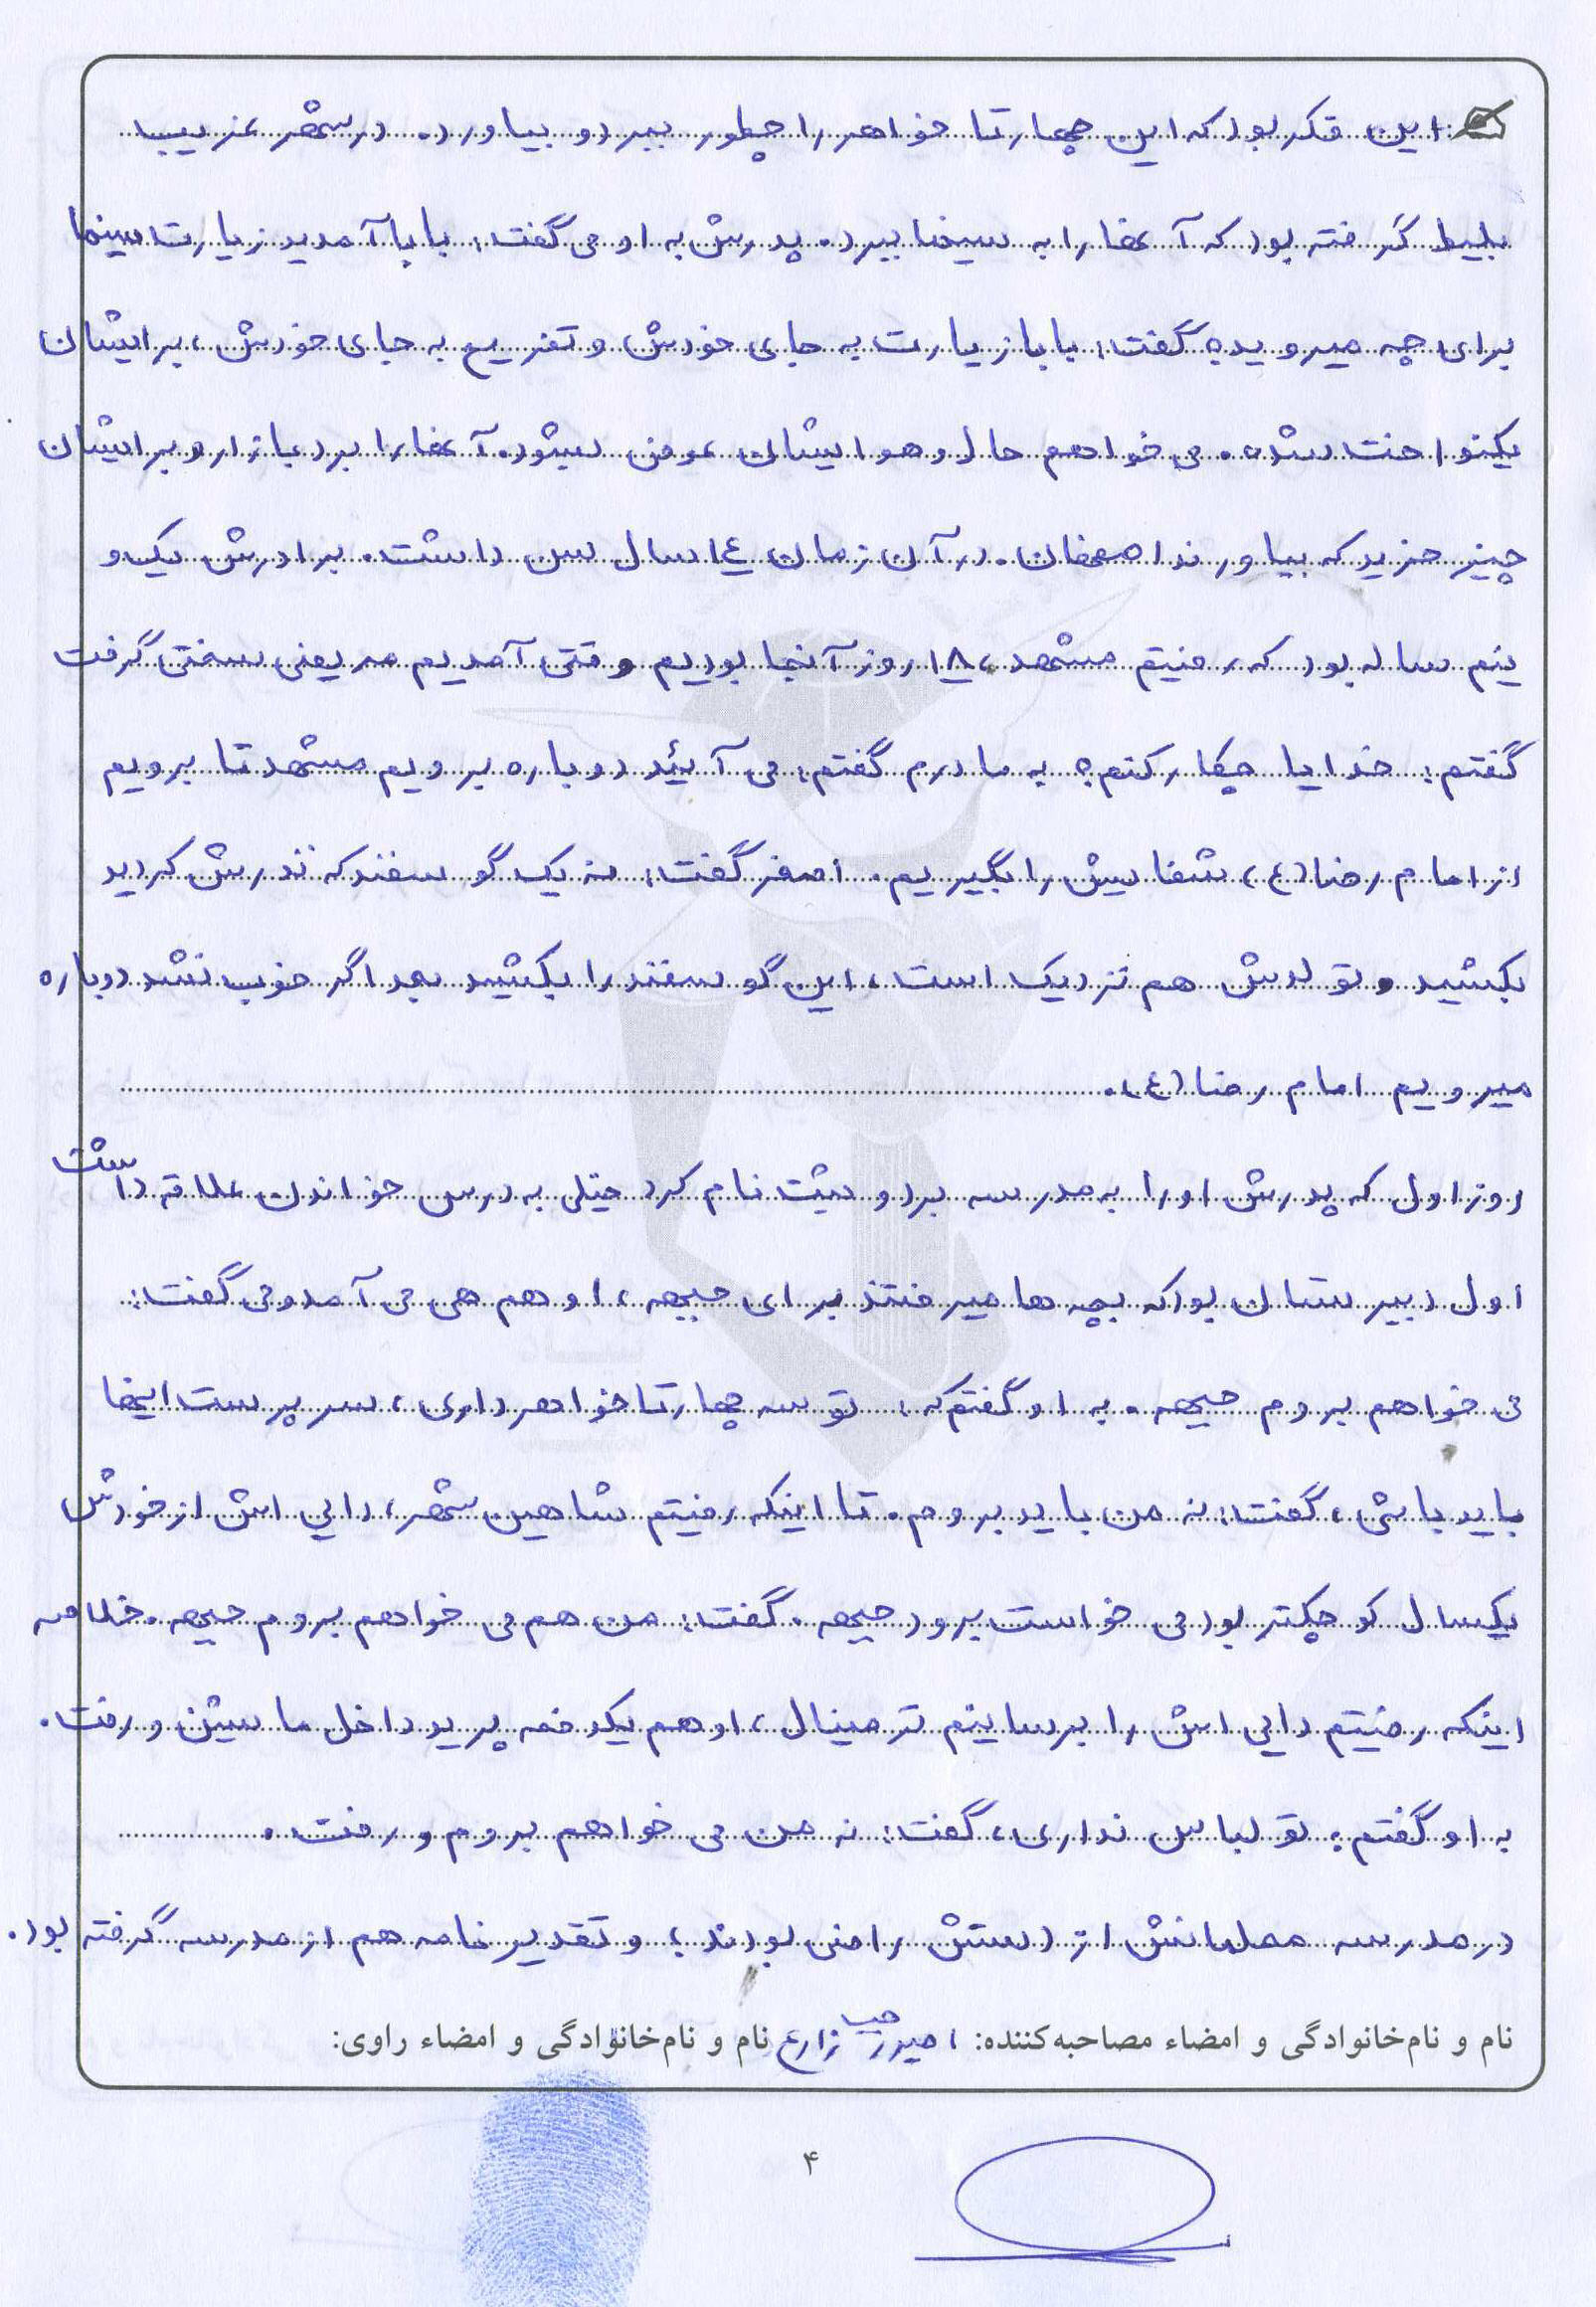 این فکر بود که این چهارتا خواهر را چطور ببرد و بیاورد. در شهر غریب
بلیط گرفته بود که آنها را به سینما ببرد. پدرش به او می گفت: بابا آمدید زیارت سینما
برای چه میروید؟ گفت: بابا زیارت به جای خودش و تفریح به جای خودش، برایشان
یکنواخت شده. می خواهم حال و هوایشان عوض بشود. آنها را برد بازار و برایشان
چیز خرید که بیاورند اصفهان. در آن زمان ١٤ سال سن داشت. برادرش یک و
نیم ساله بود که رفتیم مشهد، ١٨ روز آنجا بودیم وقتی آمدیم مریضی سختی گرفت
گفتم: خدایا چکار کنم؟ به مادرم گفتم: می آئید دوباره برویم مشهد تا برویم
از امام رضا (ع) شفایش را بگیریم. اصغر گفت: نه یک گوسفند که نذرش کردید
بکشید و تولدش هم نزدیک است، این گوسفند را بکشید بعد اگر خوب نشد دوباره
میرویم امام رضا (ع).
روز اول که پدرش او را به مدرسه برد و ثبت نام کرد خیلی به درس خواندن علاقه داشت
اول دبیرستان بود که بچه ها میرفتند برای جبهه، او هم هی می آمد و می گفت:
می خواهم بروم جبهه. به او گفتم که: تو سه چهارتا خواهر داری، سرپرست اینها
باید باشی، گفت: نه من باید بروم. تا اینکه رفتیم شاهین شهر، دایی اش از خودش
یکسال کوچکتر بود می خواست برود جبهه. گفت: من هم می خواهم بروم جبهه. خلاصه
اینکه رفتیم دایی اش را برسانیم ترمینال، او هم یکدفعه پرید داخل ماشین و رفت.
به او گفتم: تو لباس نداری، گفت: نه من می خواهم بروم و رفت.
در مدرسه معلمانش از دستش راضی بودند؛ و تقدیر نامه هم از مدرسه گرفته بود.
نام و نام‌خانوادگی و امضاء مصاحبه‌کننده: زارع نام و نام‌خانوادگی و امضاء راوی:
۴